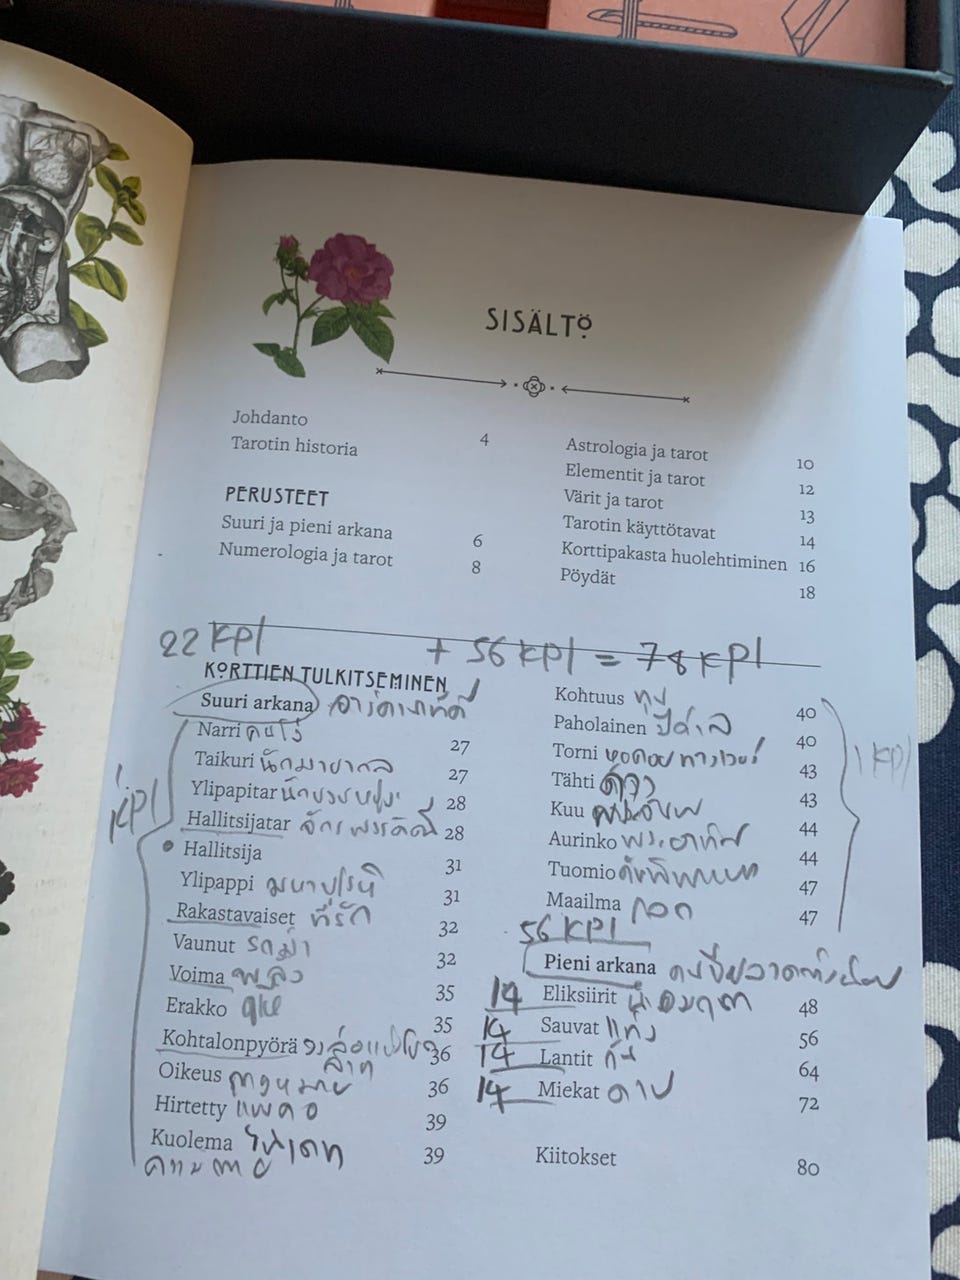 SISÄLTÖ
Johdanto 4
Tarotin historia
PERUSTEET
Suuri ja pieni arkana 6
Numerologia ja tarot 8
Astrologia ja tarot 10
Elementit ja tarot 12
Värit ja tarot 13
Tarotin käyttötavat 14
Korttipakasta huolehtiminen 16
Pöydät 18
22 KPl + 56 KPl = 78 KPl
KORTTIEN TULKITSEMINEN
Suuri arkana
Narri 27
Taikuri นักมายากล 27
Ylipapitar 28
Hallitsijatar 28
Hallitsija 31
Ylipappi 31
Rakastavaiset ที่รัก 32
Vaunut รถม้า 32
Voima พลัง 35
Erakko 35
Kohtalonpyörä 36
Oikeus กฎหมาย 36
Hirtetty 39
Kuolema 39
ความตาย
1 KPl
Kohtuus 40
Paholainen 40
Torni 43
Tähti 43
Kuu 44
Aurinko พระอาทิตย์ 44
Tuomio 47
Maailma โลก 47
1 KPl
56 KPl
Pieni arkana
14 Eliksiirit 48
14 Sauvat 56
14 Lantit 64
14 Miekat ดาบ 72
Kiitokset 80